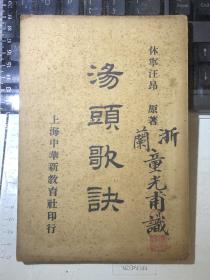 休寧汪昂 原著
湯頭歌訣
上海中華新教育社印行
浙蘭童光甫識